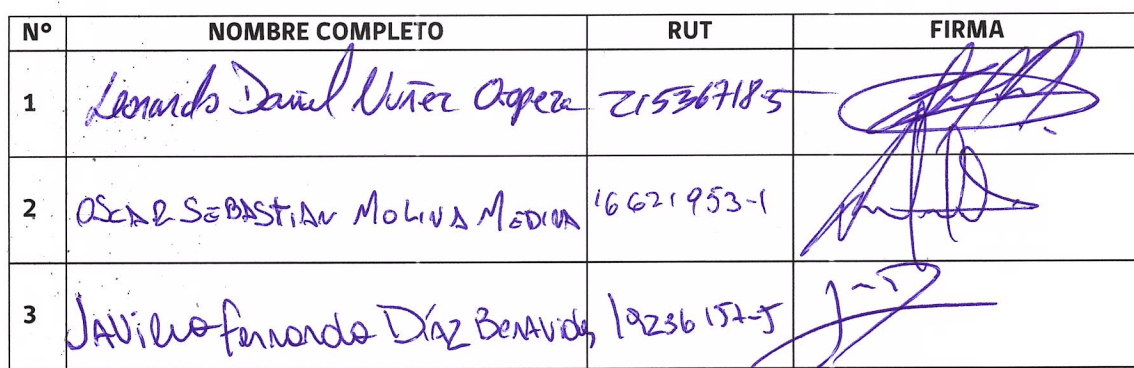 Nº NOMBRE COMPLETO RUT FIRMA
1 Leonardo Daniel Nuñez Oropeza 21536718-5
2 OSCAR SEBASTIAN MOLINA MEDINA 16621953-1
3 JAVIER Fernando Díaz Benavides 19236157-5